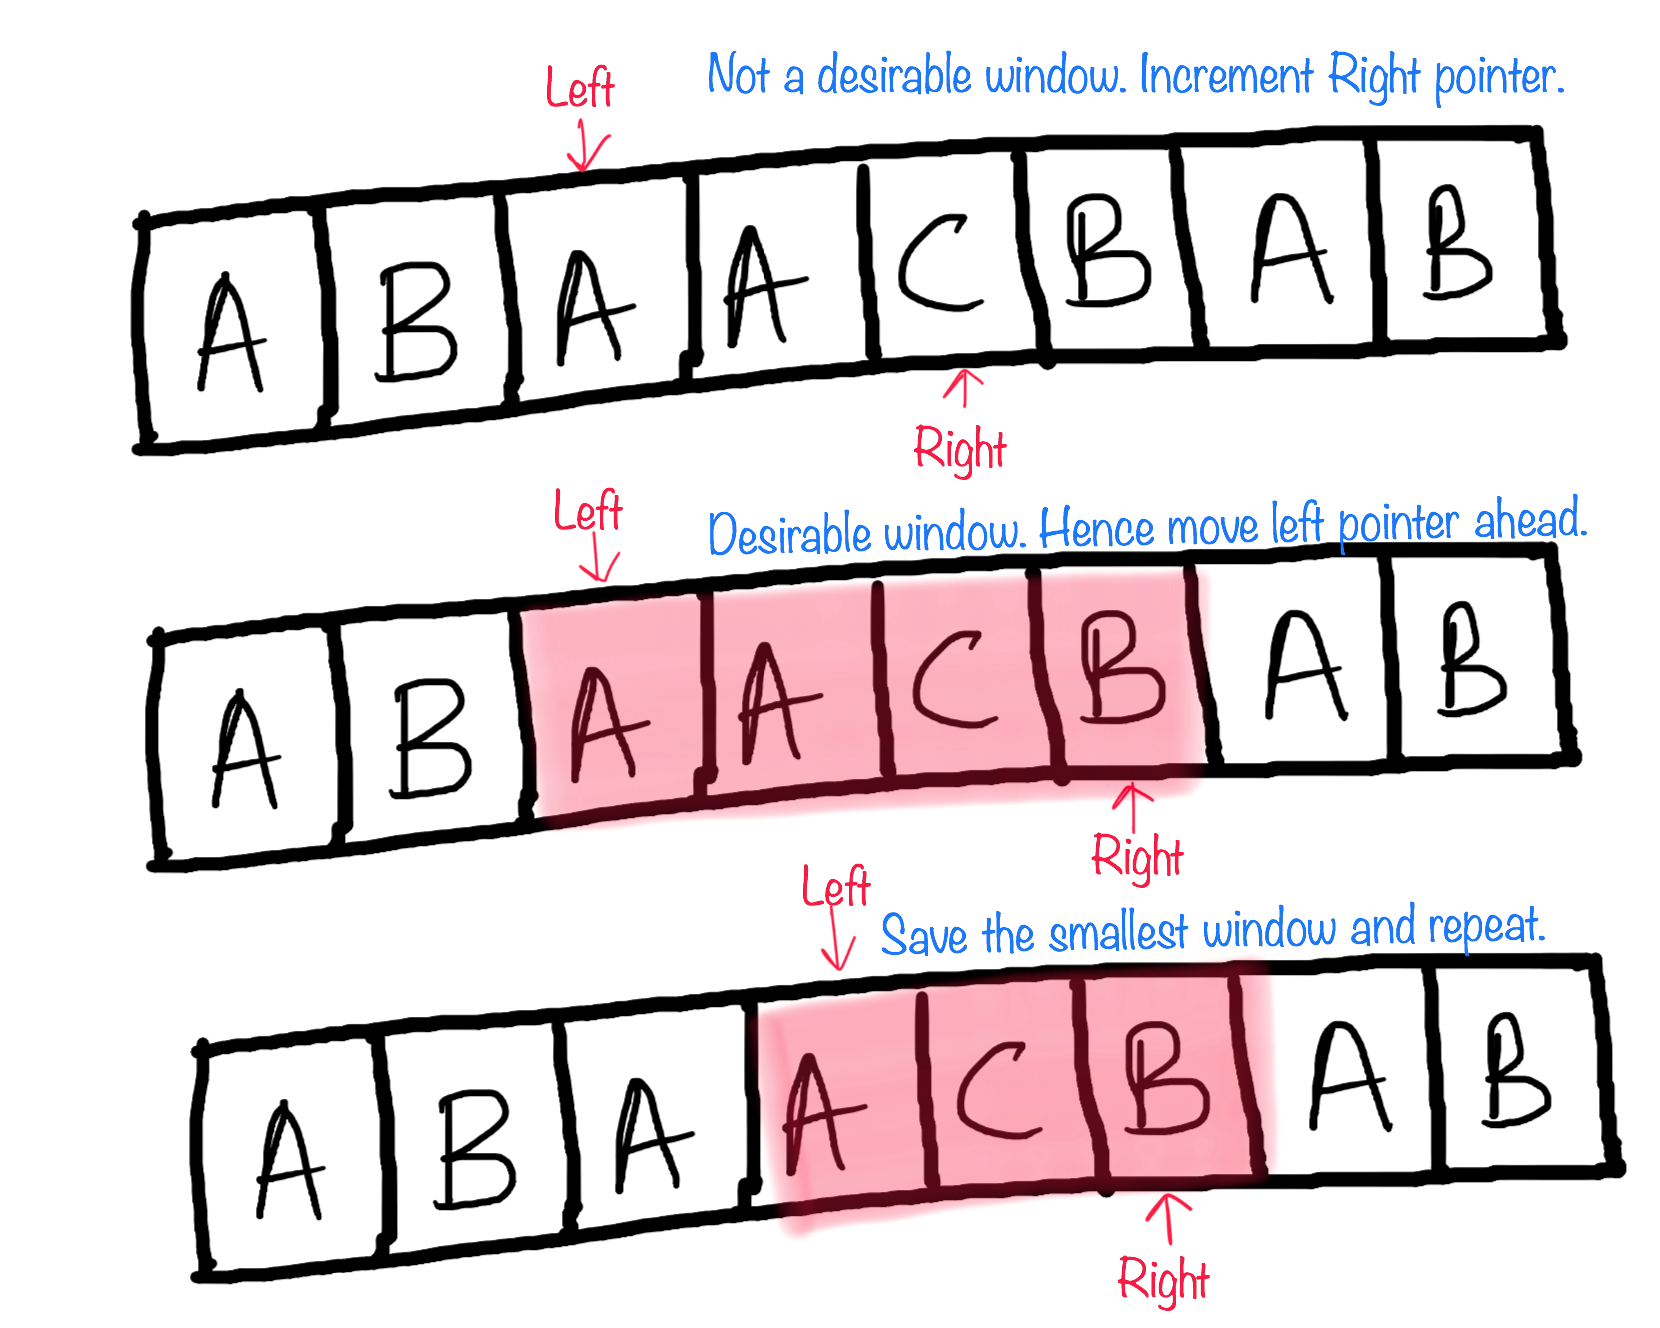 Left
Not a desirable window. Increment Right pointer.
A B A A C B A B
Right
Left
Desirable window. Hence move left pointer ahead.
A B A A C B A B
Right
Left
Save the smallest window and repeat.
A B A A C B A B
Right